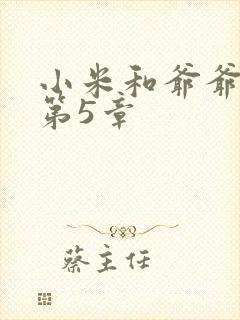 小米和爷爷
第5章
蔡主任